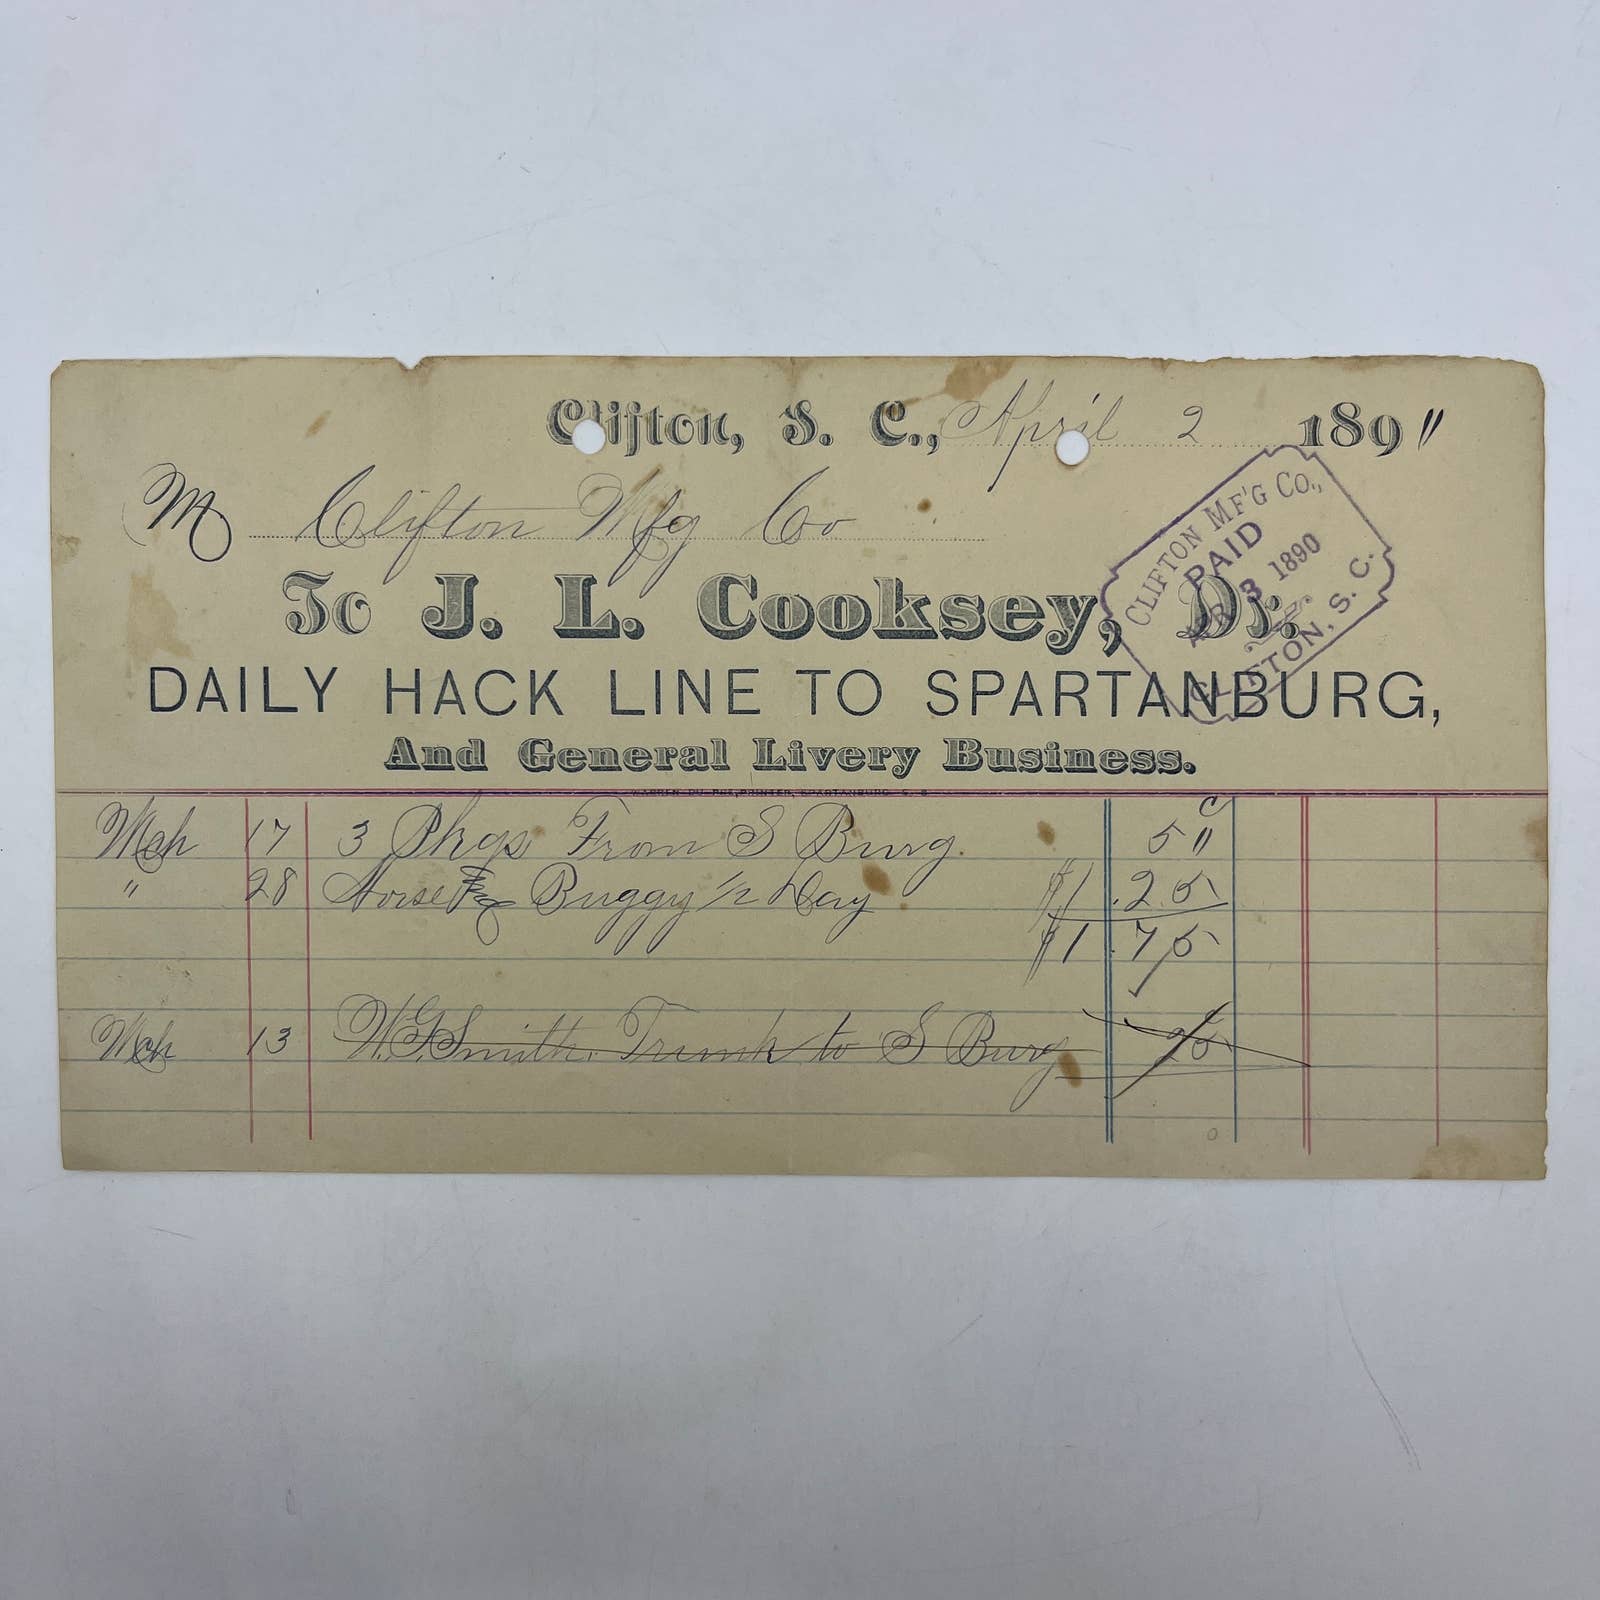 Clifton, S. C., April 2 189"
M Clifton Mfg Co
To J. L. Cooksey, Dr.
CLIFTON MF'G CO.,
PAID
APR 3 1890
CLIFTON, S. C.
DAILY HACK LINE TO SPARTANBURG,
And General Livery Business.
WARREN DU PRE, PRINTER, SPARTANBURG S. C.
Mch 17 3 Pkgs From S Burg. 5" c
" 28 Horse & Buggy 1/2 Day $1.25
$1.75
Mch 13 W.G. Smith. Trunk to S Burg 25